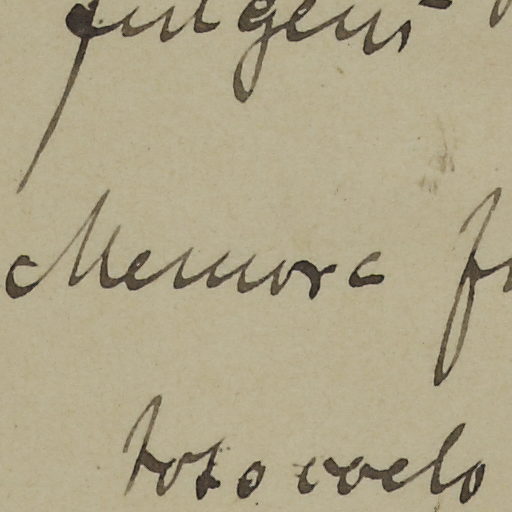 fulgens
Memora
toto coelo